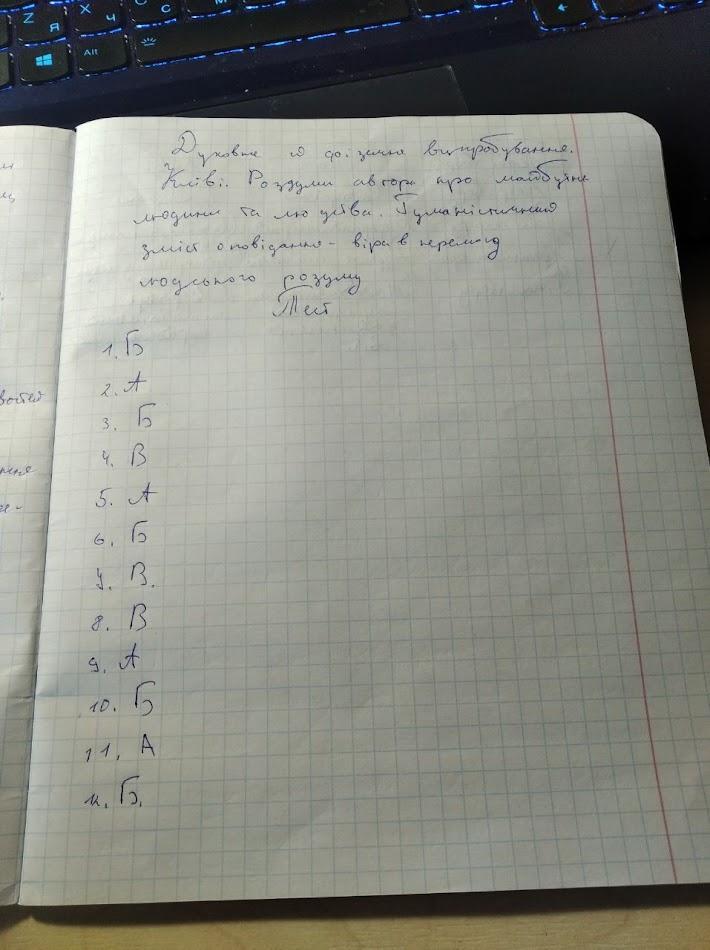 Z Я
X Ч
C С
Alt
Духовне й фізичне випробування.
Кліві. Роздуми автора про майбутнє
людини та людства. Гуманістичний
зміст оповідання - віра в перемогу
людського розуму
Тест
1. Б
2. А
3. Б
4. В
5. А
6. Б
7. В.
8. В
9. А
10. Б
11. А
12. Б.